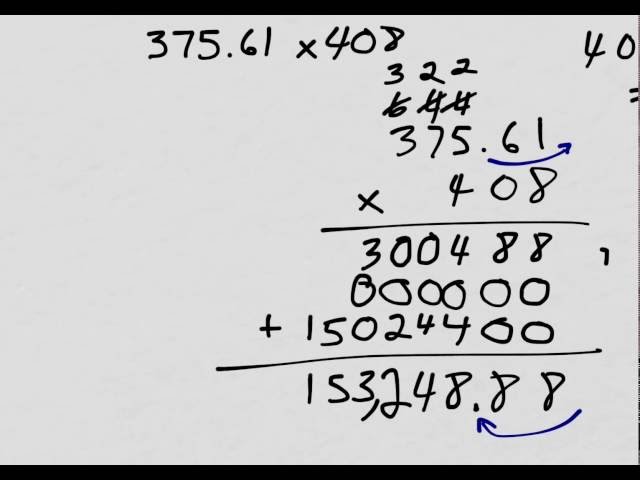 375.61 x 408
40
=
3 2 2
6 4 4
375.61
x 408
300488
,
000000
+ 15024400
153,248.88